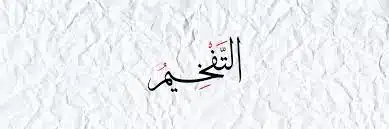 التَّفْخِيمُ